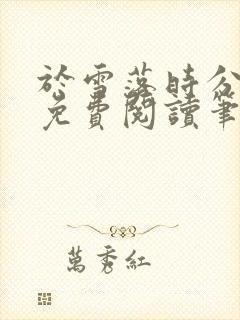 於雪落時分
免費閱讀筆
萬秀紅